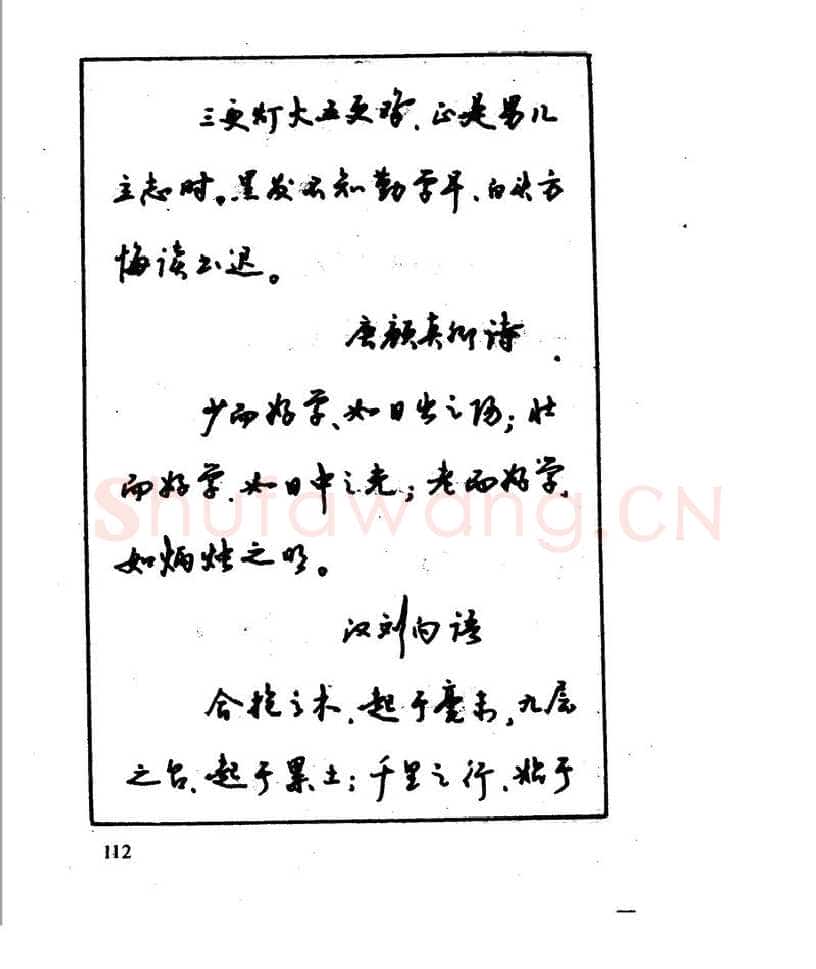 三更灯火五更鸡,正是男儿
立志时。黑发不知勤学早,白头方
悔读书迟。
唐颜真卿诗
少而好学,如日出之阳;壮
而好学,如日中之光;老而好学,
如炳烛之明。
汉刘向语
合抱之木,起于毫末,九层
之台,起于累土;千里之行,始于
112
Shufawang.CN